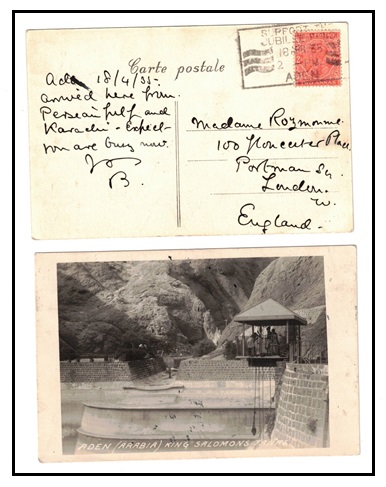 Carte postale
SUPPORT THE
JUBILEE
18 APR 35
2 PM
ADEN
Aden 18/4/35-
arrived here from
Persian gulf and
Karachi - Expect
you are busy now.
B.
Madame Raymonne.
100 Gloucester Place
Portman Sq.
London.
W.
England.
ADEN (ARABIA) KING SALOMONS TANKS